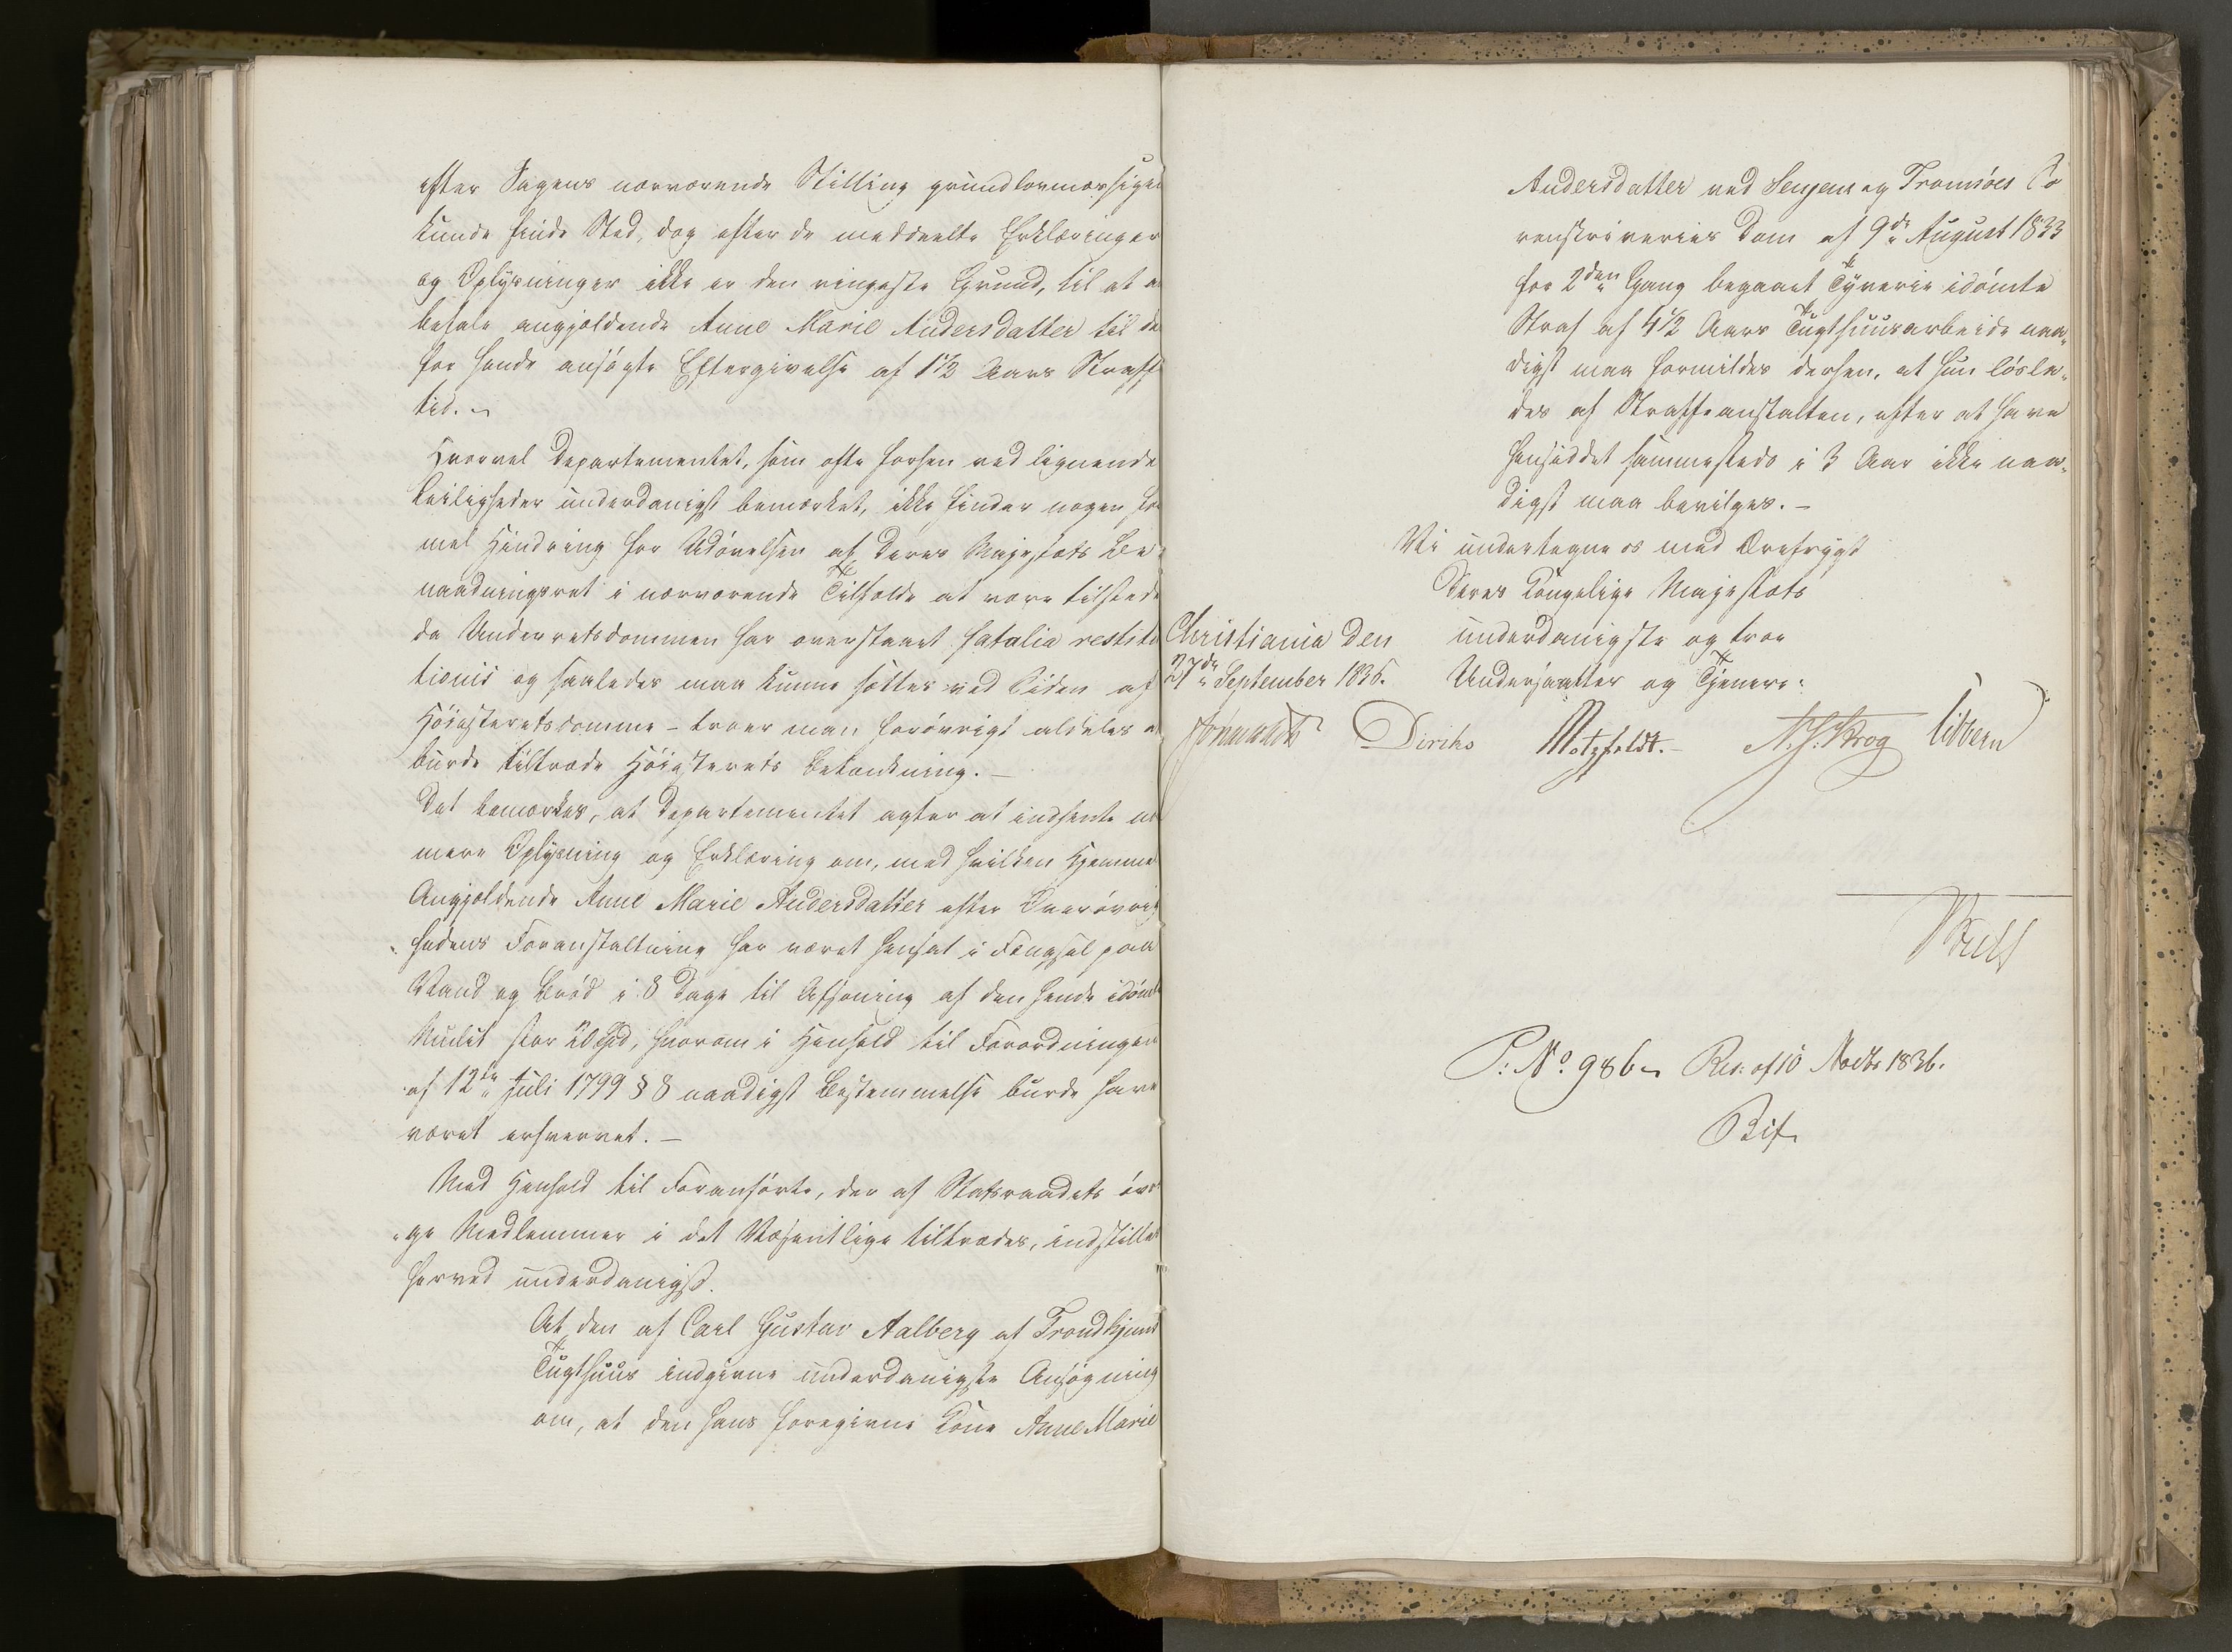 efter Sagens nærværende Stilling grundlovmæssigen
kunde finde Sted, dog efter de meddeelte Erklæringer
og Oplysninger ikke er den ringeste Grund, til at an
befale angjældende Anne Marie Andersdatter til de
for hende ansøgte Eftergivelse af 1 1/2 Aars Straff
tid. –
Hvorvel Departementet, som ofte forhen ved lignende
Leiligheder underdanigst bemærket, ikke finder nogen for
mel Hindring for Udøvelsen af Deres Majestæts Be
naadningsret i nærværende Tilfælde at være tilstede
da Underretsdommen har overstaaet fatalia restitu
tionis og saaledes maa kunne sættes ved Siden af
Høiesteretsdomme – troer man forøvrigt aldeles at
burde tiltræde Høiesterets Betænkning. –
Det bemærkes, at Departementet agter at indhente nær
mere Oplysning og Erklæring om, med hvilken Hjemmel
Angjældende Anne Marie Andersdatter efter Overøvrig
hedens Foranstaltning har været hensat i Fængsel paa
Vand og Brød i 8 Dage til Afsoning af den hende idømte
Mulct stor Spd, hvorom i Henhold til Forordningen
af 12te Juli 1799 § 8 naadigst Bestemmelse burde have
været erhvervet. –
Med Henhold til Foranførte, der af Statsraadets øvri
„ge Medlemmer i det Væsentlige tiltrædes, indstilles
herved underdanigst.
At den af Carl Gustav Aalberg af Trondhjems
Tugthuus indgivne underdanigste Ansøgning
om, at den hans foregivne Kone Anne Marie
Andersdatter ved Senjens og Tromsøes So
renskriveries Dom af 9de August 1833
for 2den Gang begaaet Tyverie idømte
Straf af 4 1/2 Aars Tugthuusarbeide naa„
digst maa formildes derhen, at hun løsla„
des af Straffeanstalten, efter at have
hensiddet sammesteds i 3 Aar ikke naa„
digst maa bevilges. –
Vi undertegne os med Ærefrygt
Deres Kongelige Majestæts
Christiania den underdanigste og troe
27de September 1836. Undersaatter og Tjenere:
Diriks Motzfeldt. – N. J. Krog Sibbern
P: No 986 – Res: af 10 Novbr 1836.
Bif.